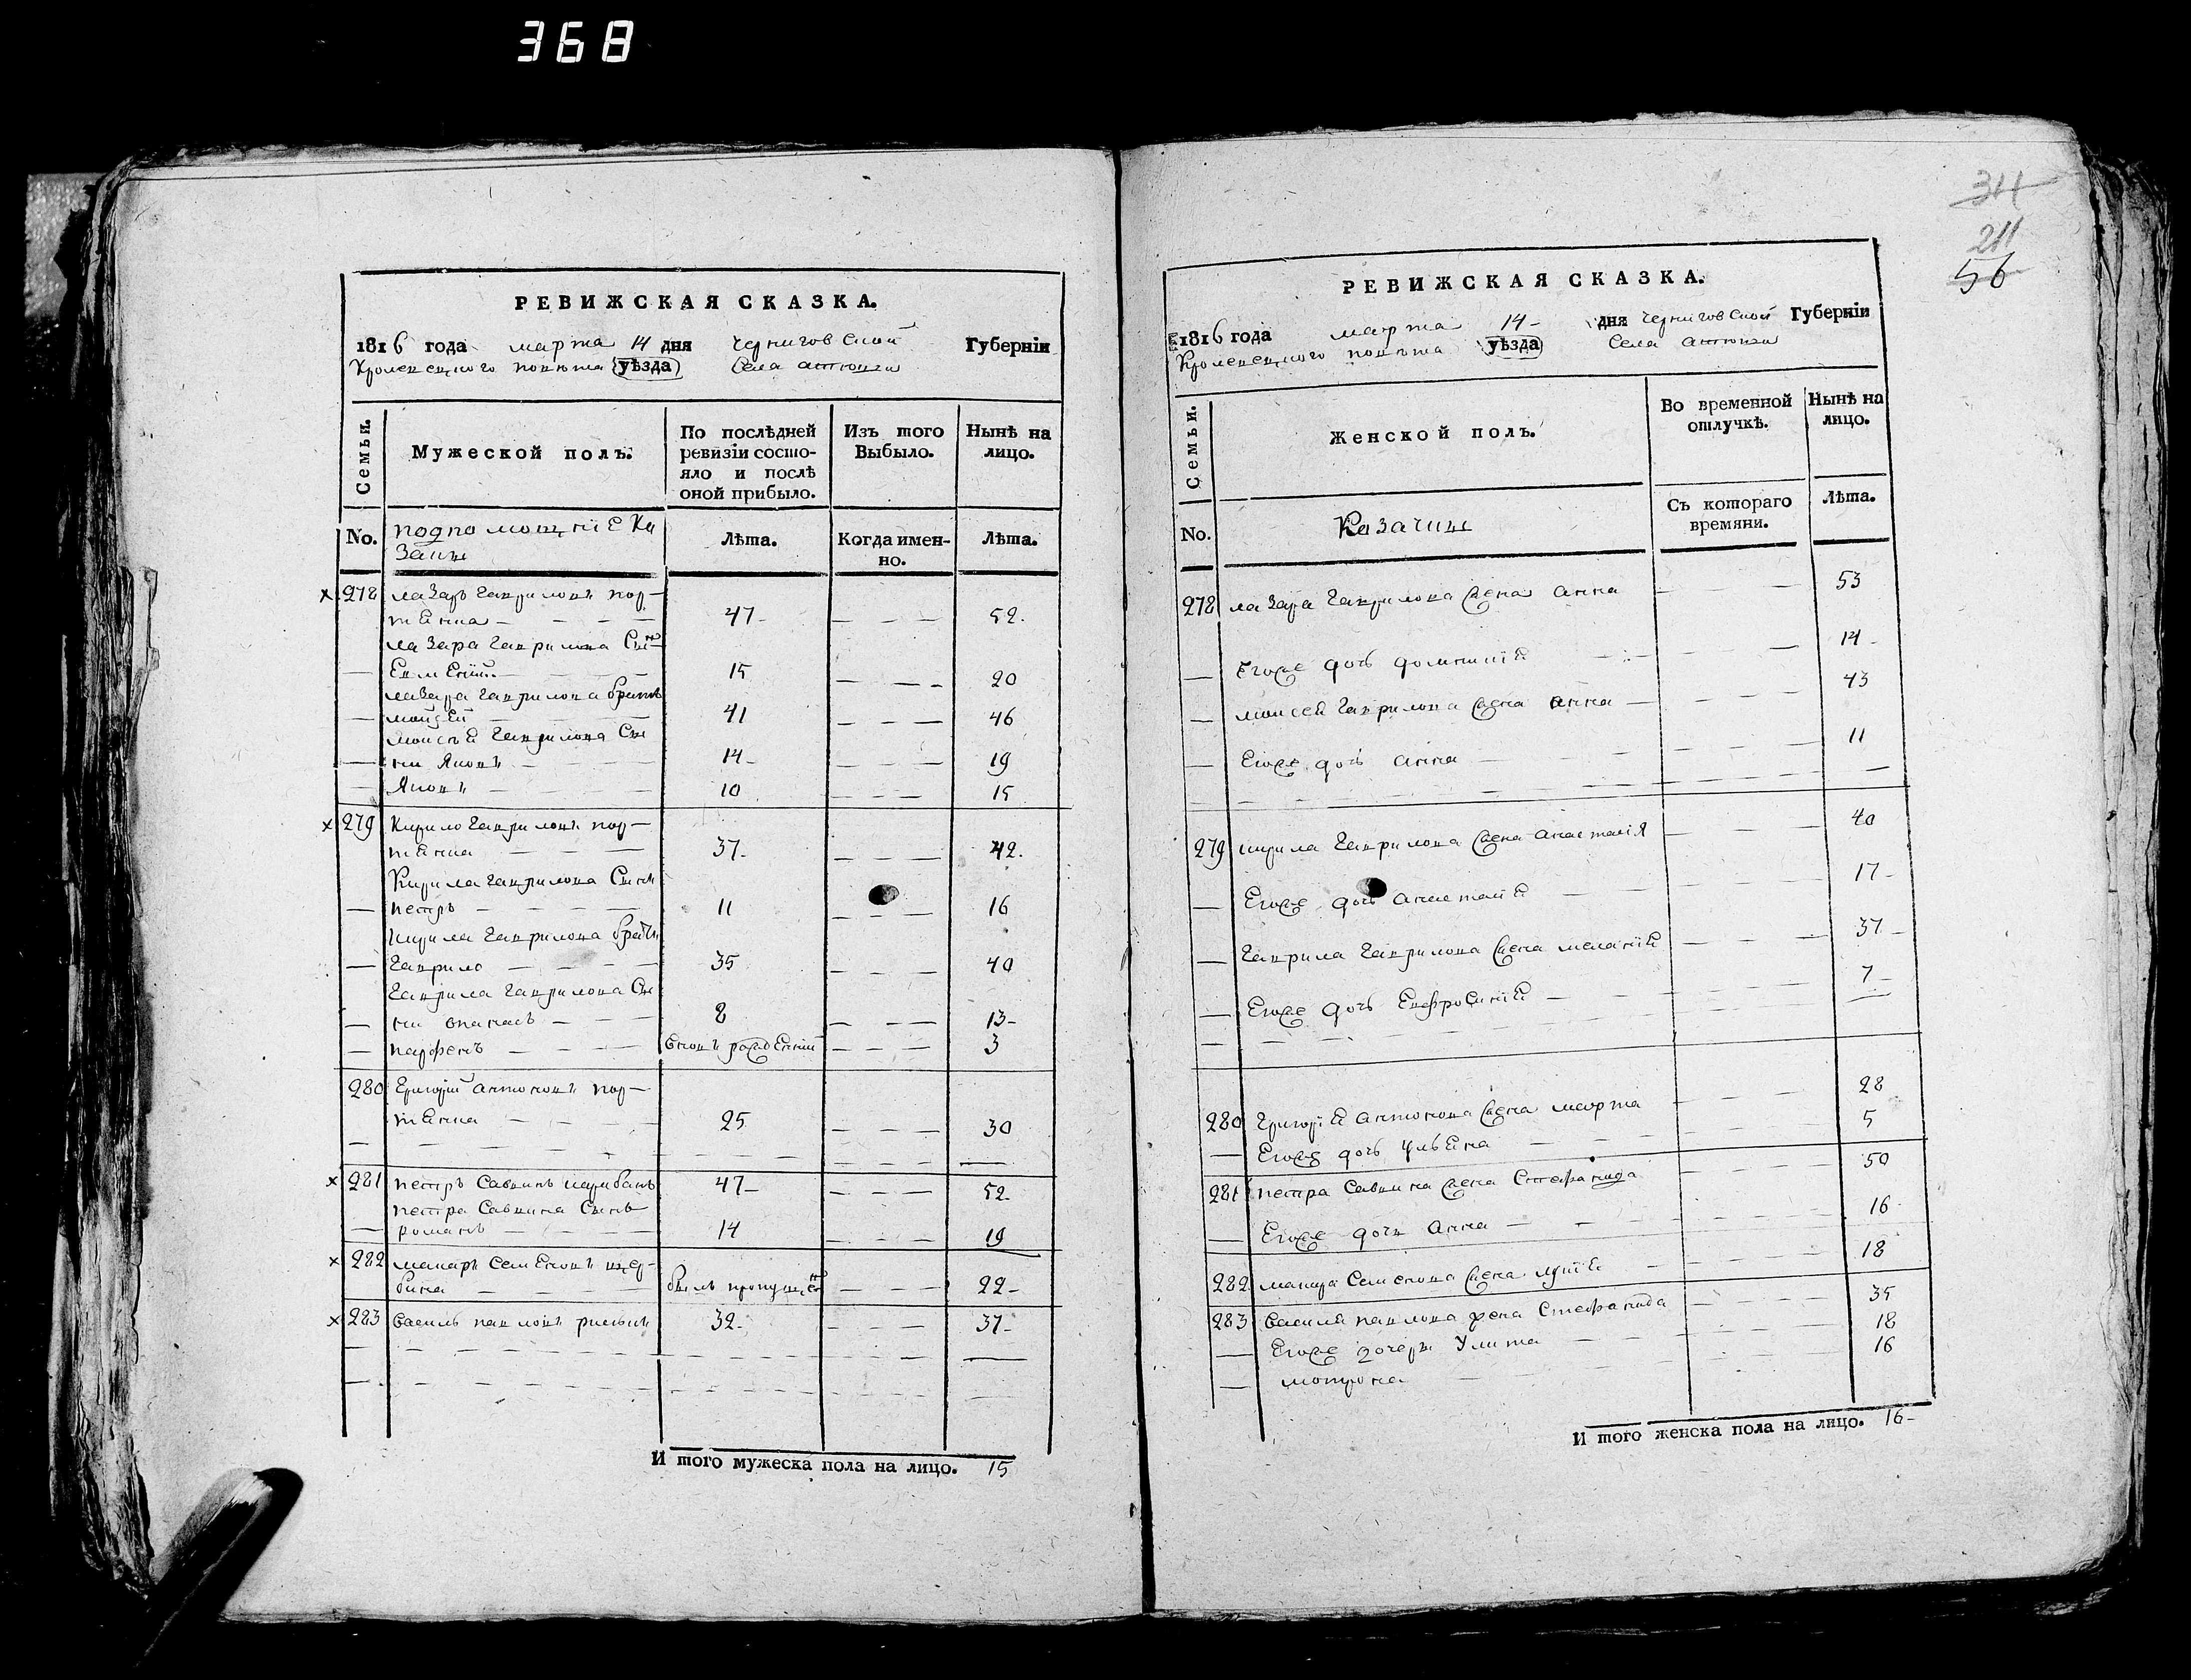 368
311
211
56
РЕВИЖСКАЯ СКАЗКА.
1816 года марта 14 дня черниговской Губерніи
Кролевецкого повѣта уѣзда Села
Семьи.
Мужеской полъ.
По послѣдней ревизіи состо-
яло и послѣ
оной прибыло.
Изъ того
Выбыло.
Нынѣ на
лицо.
No.
подпомощніе Ка
заки
Лѣта.
Когда имен-
но.
Лѣта.
278 лазарь гавриловъ пор-
тянка 47 52.
лазара гаврилова Сынъ
Евмений 15 20
лазара гаврилова братъ
мойсей 41 46
моисея гаврилова Сы
ни Яковъ 14 19
Яковъ 10 15
279 Кирило гавриловъ пор-
тянка 37 42.
Кирила гаврилова Сынъ
петръ 11 16
Кирила гаврилова братъ
гаврило 35 40
гаврила гаврилова Сы
ни опанасъ 8 13
парфенъ вновь рожденний 3
280 григорій антоновъ пор-
тянка 25 30
281 петръ Саввинъ 47 52
петра Саввина Сынъ
романъ 14 19
282 макаръ Семеновъ щер-
бина былъ пропущен 22
283 василь павловъ 32 37
И того мужеска пола на лицо. 15
РЕВИЖСКАЯ СКАЗКА.
1816 года марта 14 дня черниговской Губерніи
Кролевецкого повѣта уѣзда Села
Семьи.
Женской полъ.
Во временной
отлучкѣ.
Нынѣ на
лицо.
No.
Казачки
Съ котораго
времяни.
Лѣта.
278 лазара гаврилова жена анна 53
Егоже дочь 14
моисея гаврилова жена анна 43
Егоже дочь анна 11
279 кирила гаврилова жена анастасія 40
Егоже дочь анастасія 17
гаврила гаврилова жена меланія 37
Егоже дочь Евфросинія 7
280 григорія антонова жена марта 28
Егоже дочь ульяна 5
281 петра Саввина жена Стефанида 50
Егоже дочь анна 16
282 макара Семенова жена 18
283 василя павлова жена Стефанида 35
Егоже дочери Улита 18
мотрона 16
И того женска пола на лицо. 16